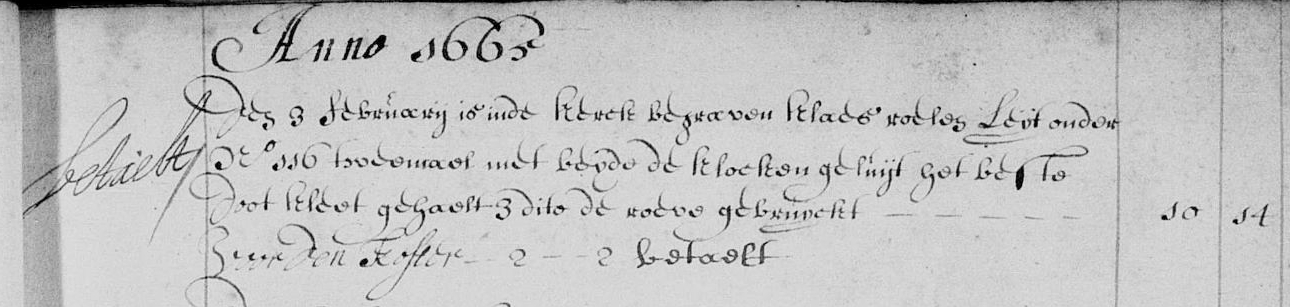 Anno 1665
Den 3 februarij is inde kerck begraven klaes roelez Leyt onder
betaelt N° 116 tweemael met beyde de klocken geluijt het beste
doot kleet gehaelt 3 dito de roeve gebruyckt — — — — — 10 14
voor Den Koster — 2 — 2 betaelt